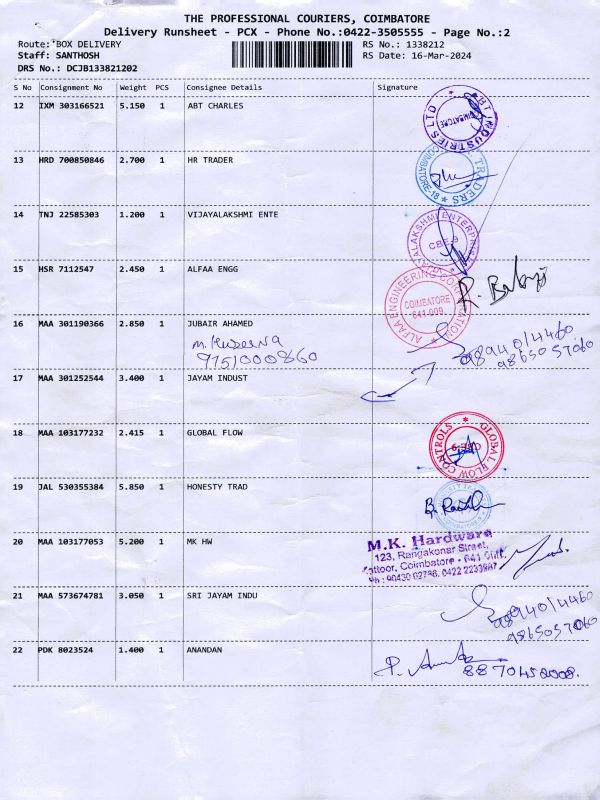 THE PROFESSIONAL COURIERS, COIMBATORE
Delivery Runsheet - PCX - Phone No.:0422-3505555 - Page No.:2
Route: BOX DELIVERY RS No.: 1338212
Staff: SANTHOSH RS Date: 16-Mar-2024
DRS No.: DCJB133821202
S No Consignment No Weight PCS Consignee Details Signature
12 IXM 303166521 5.150 1 ABT CHARLES
INDUSTRIES LTD COIMBATORE
13 HRD 700850846 2.700 1 HR TRADER
TRADERS COIMBATORE-18
14 TNJ 22585303 1.200 1 VIJAYALAKSHMI ENTE
CBE-9
15 HSR 7112547 2.450 1 ALFAA ENGG
ALFAA ENGINEERING CORPORATION
COIMBATORE
641 009.
R. Babuji
16 MAA 301190366 2.850 1 JUBAIR AHAMED
9751000860
9894014460
9865057060
17 MAA 301252544 3.400 1 JAYAM INDUST
18 MAA 103177232 2.415 1 GLOBAL FLOW
GLOBAL FLOW CONTROLS
19 JAL 530355384 5.850 1 HONESTY TRAD
20 MAA 103177053 5.200 1 MK HW
M.K. Hardware
123, Rangakonar Street,
Kattoor, Coimbatore - 641 009.
Ph : 90430 02786, 0422 2233987
21 MAA 573674781 3.050 1 SRI JAYAM INDU
9894014460
9865057060
22 PDK 8023524 1.400 1 ANANDAN
8870452008.